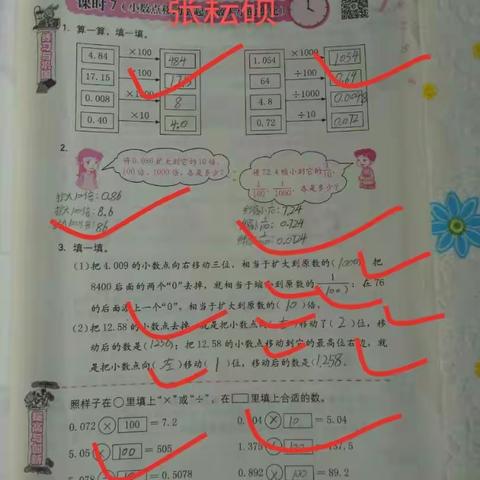 课时7(小数点
张耘硕
练习与巩固
1. 算一算，填一填。
4.84 ×100 484 1.054 ×1000 1054
17.15 ÷100 64 ÷100 0.64
0.008 ×1000 8 4.8 ÷1000 0.0048
0.40 ×10 4.0 0.72 ÷10 0.072
2.
将0.086扩大到它的10倍、
100倍、1000倍，各是多少？
将72.4缩小到它的1/10、
1/100、1/1000，各是多少？
扩大10倍：0.86
扩大100倍：8.6
86
7.24
0.724
0.0724
3. 填一填。
(1)把4.009的小数点向右移动三位，相当于扩大到原数的(1000) 把
8400后面的两个“0”去掉，就相当于缩小到原数的(1/100)；在76
的后面添上一个“0”，相当于扩大到原数的(10)倍。
(2)把12.58的小数点去掉，就是把小数点向(右)移动了(2)位，移
动后的数是(1258)；把12.58的小数点移动到它的最高位右边，就
是把小数点向(左)移动(1)位，移动后的数是(1.258)。
提高与创新
照样子在○里填上“×”或“÷”，在□里填上合适的数。
0.072 × 100 = 7.2 × 10 = 5.04
5.05 × 100 = 505 1.375 × 100 = 137.5
× 100 = 0.5078 0.892 × 100 = 89.2